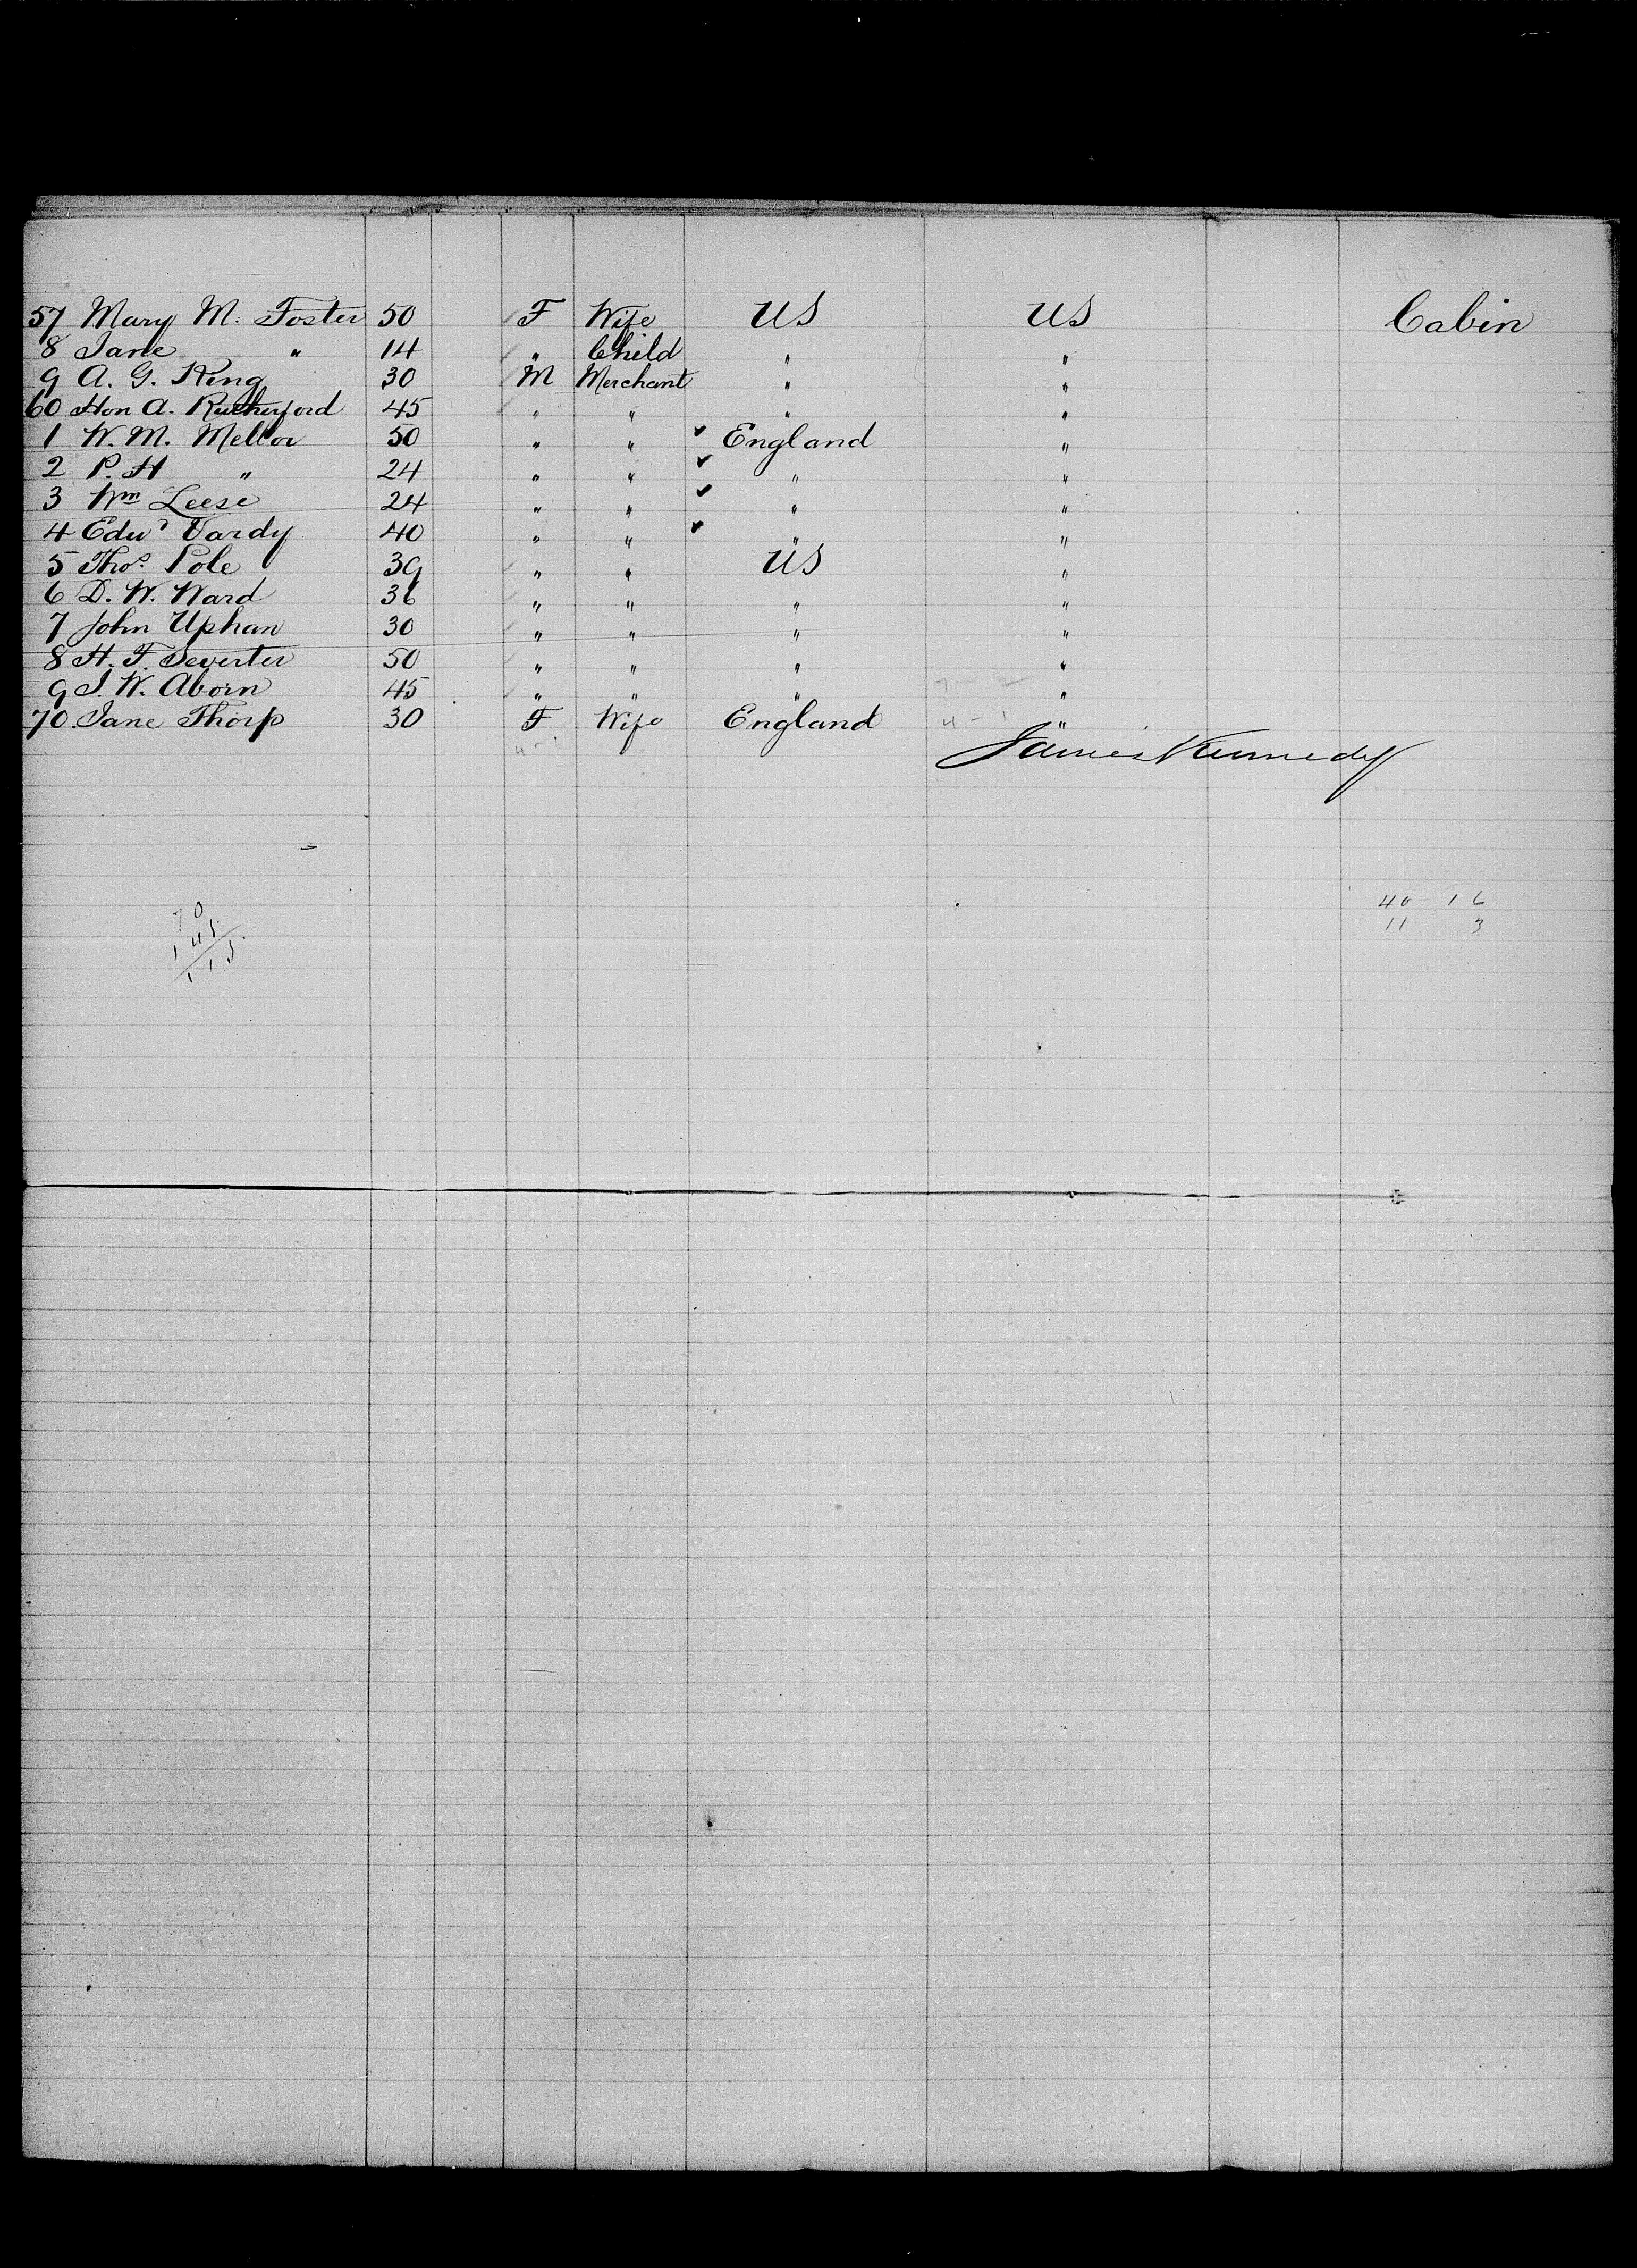 57 Mary M. Foster 50 F Wife US US Cabin
8 Jane " 14 " Child " "
9 A. G. King 30 M Merchant " "
60 Hon A. Rutherford 45 " " " "
1 W. M. Mellor 50 " " ✓ England "
2 P. H " 24 " " ✓ " "
3 Wm Leese 24 " " ✓ " "
4 Edwd Vardy 40 " " ✓ " "
5 Thos. Pole 39 " " US "
6 D. W. Ward 36 " " " "
7 John Uphan 30 " " " "
8 H. F. 50 " " " "
9 J. W. Aborn 45 " " " "
70 Jane Thorp 30 F Wife England 4 - 1 "
4 - 1
James Kennedy
40 16
11 3
70
145